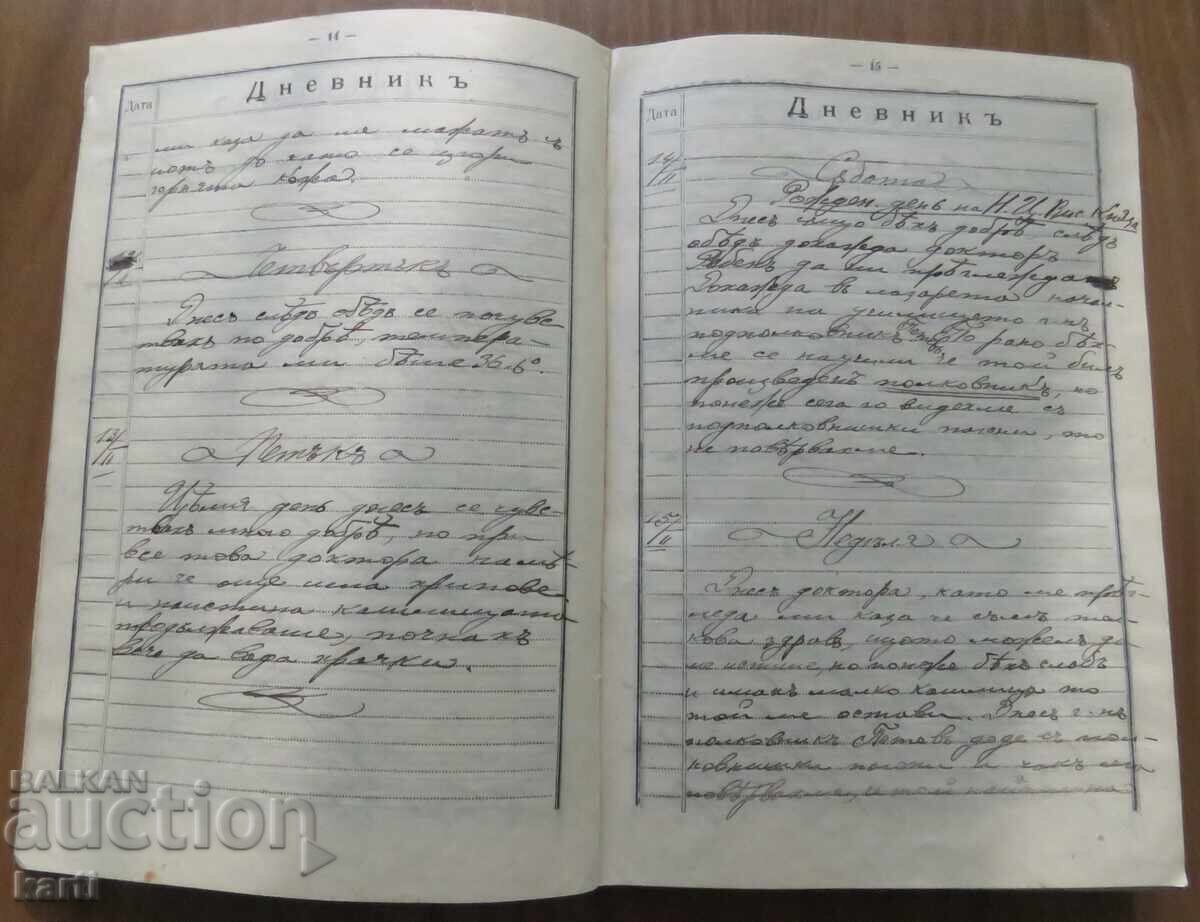 — 14 —
Дата
Дневникъ
ми каза да ня мажатъ съ
иотъ о като се изгори
горнята кожа.
12
Четвертъкъ
Днесъ слѣдъ обѣдъ се почувс-
твахъ по добрѣ, темпера-
турята ми бѣше 36.6°
13/II
Петъкъ
Цѣлия день днесъ се чувс-
твахъ много добрѣ, но при
все това доктора намѣ-
ри че още има хрипове.
и наистина кашлицата
продължаваше, почнахъ
вече да вадя храчки.
— 15 —
Дата
Дневникъ
14/II
Събота
Рожден. день на Н. Ц. Вис. Княза
Днесъ също бѣхъ добрѣ слѣдъ
обѣдъ дохожда докторъ
да ни прѣглежда
Дохожда въ лазарета начал-
ника на училището г-нъ
подполковникъ По рано бѣх-
ме се научили че той билъ
произведенъ полковникъ, но
понеже сега го видехме съ
подполковнишки пагони, то
не повѣрвахме.
15/II
Недѣля
Днесъ доктора, като ме прѣг-
леда ми каза че съмъ та-
кова здравъ, щото можелъ да
ме испише, но понеже бѣхъ слабъ
и имахъ малко кашлица то
той ме остави. Днесъ г-нъ
полковникъ доде съ пол-
ковнишки пагони и чакъ сега
повѣрвахме, и той
BALKAN
auction
karti